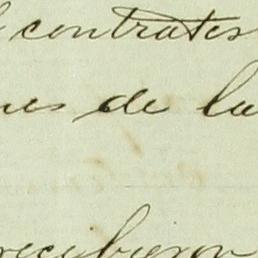 contrates
nes de la
recubieron